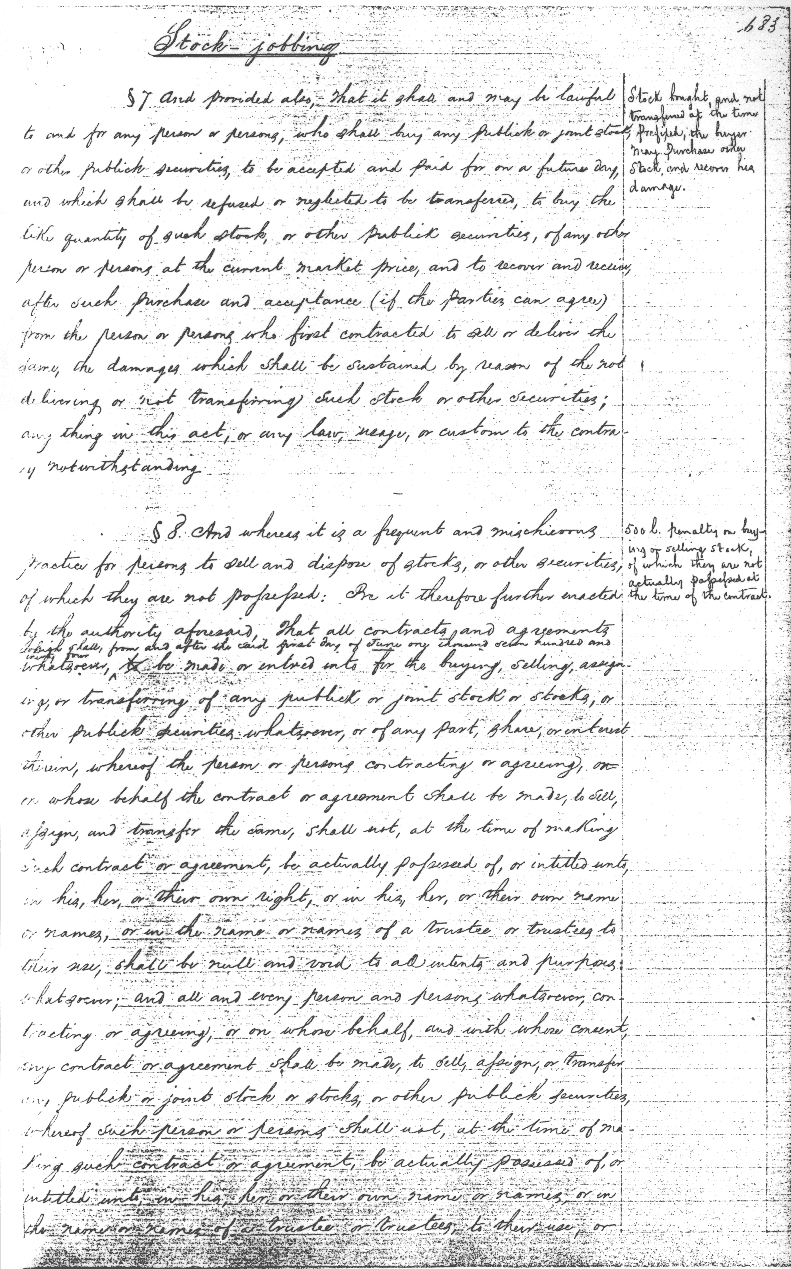 683
Stock-jobbing
§ 7. And provided also, That it shall and may be lawful
to and for any person or persons, who shall buy any publick or joint stock,
or other publick securities, to be accepted and paid for on a future day,
and which shall be refused or neglected to be transferred, to buy the
like quantity of such stock, or other publick securities, of any other
person or persons at the current market price, and to recover and receive,
after such purchase and acceptance (if the parties can agree)
from the person or persons who first contracted to sell or deliver the
same, the damages which shall be sustained by reason of the not
delivering or not transferring such stock or other securities;
any thing in this act, or any law, usage, or custom to the contra-
ry notwithstanding
Stock bought, and not
transferred at the time
prefixed, the buyer
may purchase other
Stock, and recover his
damage.
§ 8. And whereas it is a frequent and mischievous
practice for persons to sell and dispose of stocks, or other securities,
of which they are not possessed: Be it therefore further enacted
by the authority aforesaid, That all contracts and agreements
which shall, from and after the said first day of June one thousand seven hundred and
thirty four
whatsoever, be made or entred into for the buying, selling, assign-
ing, or transferring of any publick or joint stock or stocks, or
other publick securities whatsoever, or of any part, share, or interest
therein, whereof the person or persons contracting or agreeing, or
on whose behalf the contract or agreement shall be made, to sell,
assign, and transfer the same, shall not, at the time of making
such contract or agreement, be actually possessed of, or intitled unto,
in his, her, or their own right, or in his, her, or their own name
or names, or in the name or names of a trustee or trustees to
their use, shall be null and void to all intents and purposes
whatsoever; and all and every person and persons whatsoever, con-
tracting or agreeing, or on whose behalf, and with whose consent,
any contract or agreement shall be made, to sell, assign, or transfer
any publick or joint stock or stocks, or other publick securities,
whereof such person or persons shall not, at the time of ma-
king such contract or agreement, be actually possessed of, or
intitled unto in his, her, or their own name or names, or in
the name or names of a trustee or trustees, to their use, or
500 l. penalty on buy-
ing or selling stock,
of which they are not
actually possessed at
the time of the contract.